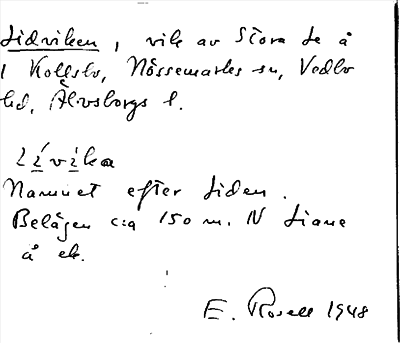 Lidviken, vik av Stora Le å
1 Kollsbo, Nössemarks sn, Vedbo
hd, Älvsborgs l.
Lívika
Namnet efter Liden.
Belägen c:a 150 m. N Liane
å ek.
E. Rosell 1948